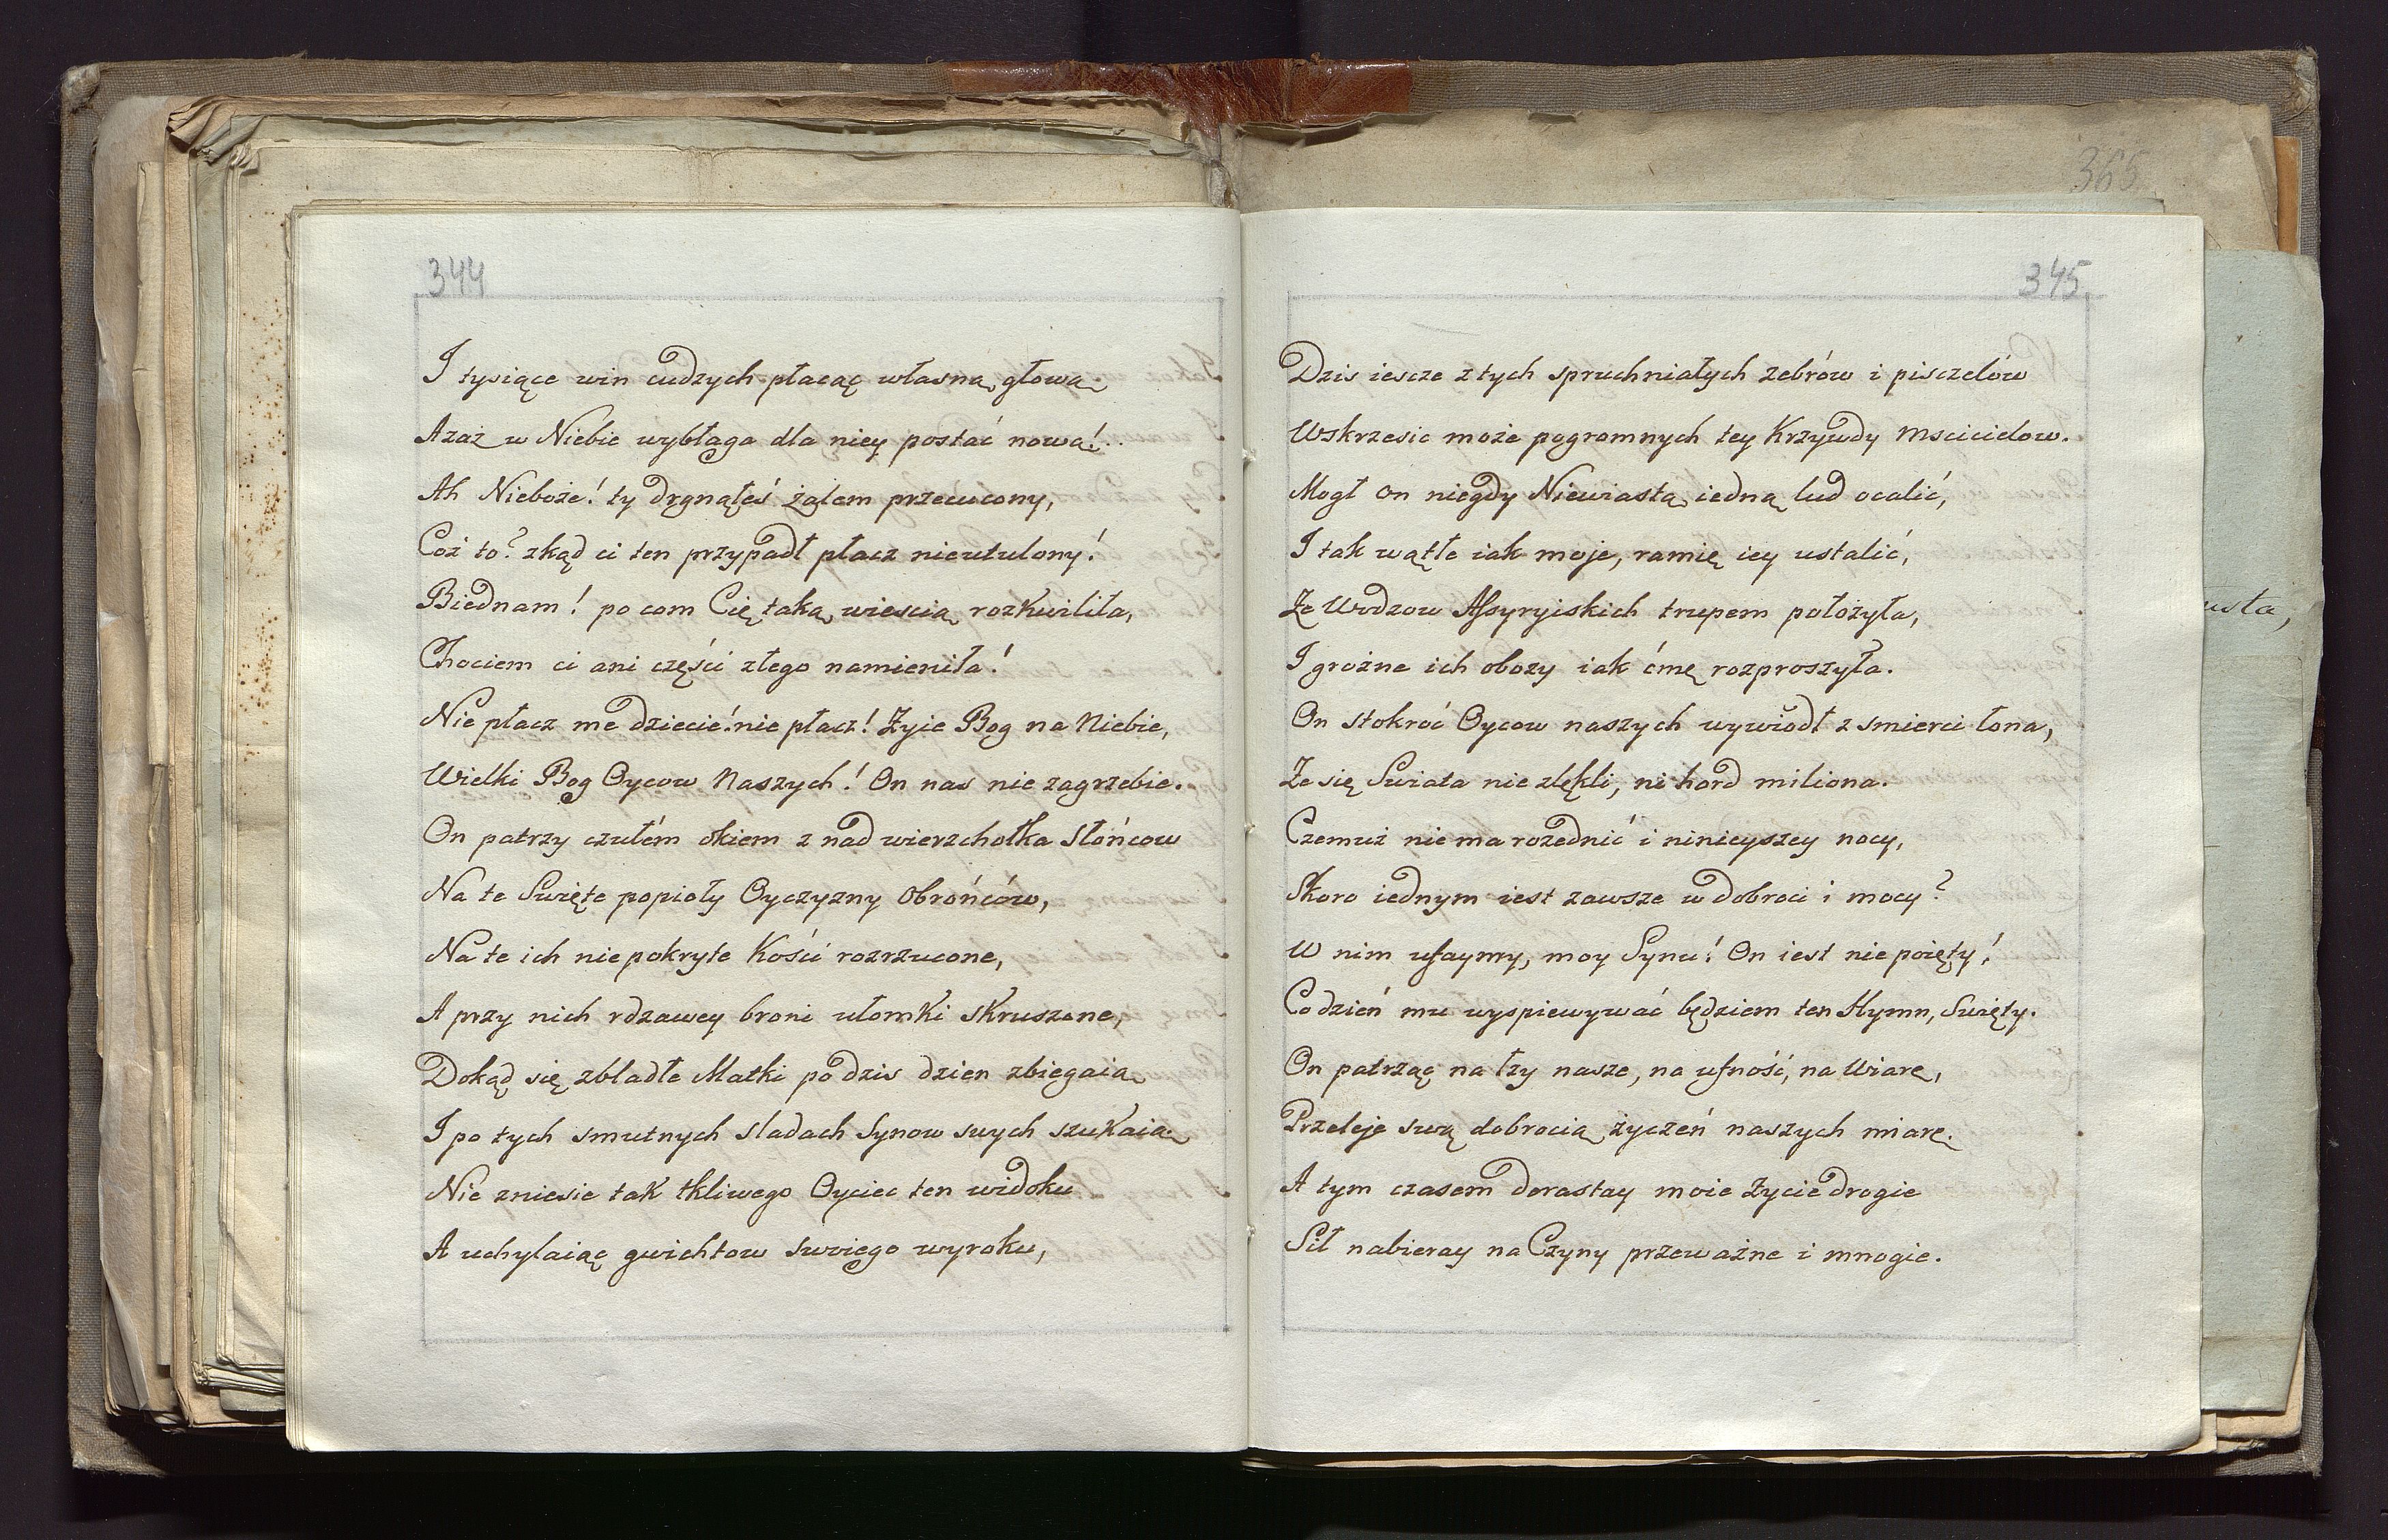 344
I tysiące win cudzych płacąc własną głową
Azaż w Niebie wybłaga dla niey postać nową!..
Ah Nieboże! ty drgnąłeś żalem przewocony,
Coż to? zkąd ci ten przypadł płacz nieutulony!
Biednam! po com Cię taką wiescią rozkwiliła,
Chociem ci ani części złego namieniła!
Nie płacz me dziecie! nie płacz! Żyie Bog na Niebie,
Wielki Bog Oycow Naszych! On nas nie zagrzebie.
On patrzy czułém okiem z nad wierzchołka Słońcow
Na te Swięte popioły Oyczyzny Obrońców,
Na te ich niepokryte Kości rozrzucone,
A przy nich rdzawey broni ułomki skruszone,
Dokąd się zbladłe Matki po dzis dzien zbiegaią
I po tych smutnych sladach Synow swych szukaią
Nie zniesie tak tkliwego Oyciec ten widoku
A uchylaiąc gwichtow swoiego wyroku,
365
345
Dzis iescze z tych spruchniałych zebrów i pisczelów
Wskrzesic może pogromnych tey Krzywdy mscicielow.
Mogł on niegdy Niewiastą iedną lud ocalić,
I tak wątłe iak moje, ramię iey ustalić,
Ze Wodzow Assyryiskich trupem położyła,
I groźne ich obozy iak ćmę rozproszyła.
On stokroć Oycow naszych wywiódł z smierci łona,
Ze się Swiata nie zlękli, ni hord miliona.
Czemuż nie ma rozednić i ninieyszey nocy,
Skoro iednym iest zawsze w dobroci i mocy?
W nim ufaymy, moy Synu! On iest nie poięty!
Co dzień mu wyspiewywać będziem ten Hymn, Swięty.
On patrząc na łzy nasze, na ufność, na Wiarę,
Przeleje swą dobrocią życzeń naszych miarę.
A tym czasem dorastay moie życie drogie
Sił nabieray na Czyny przeważne i mnogie.
usta,